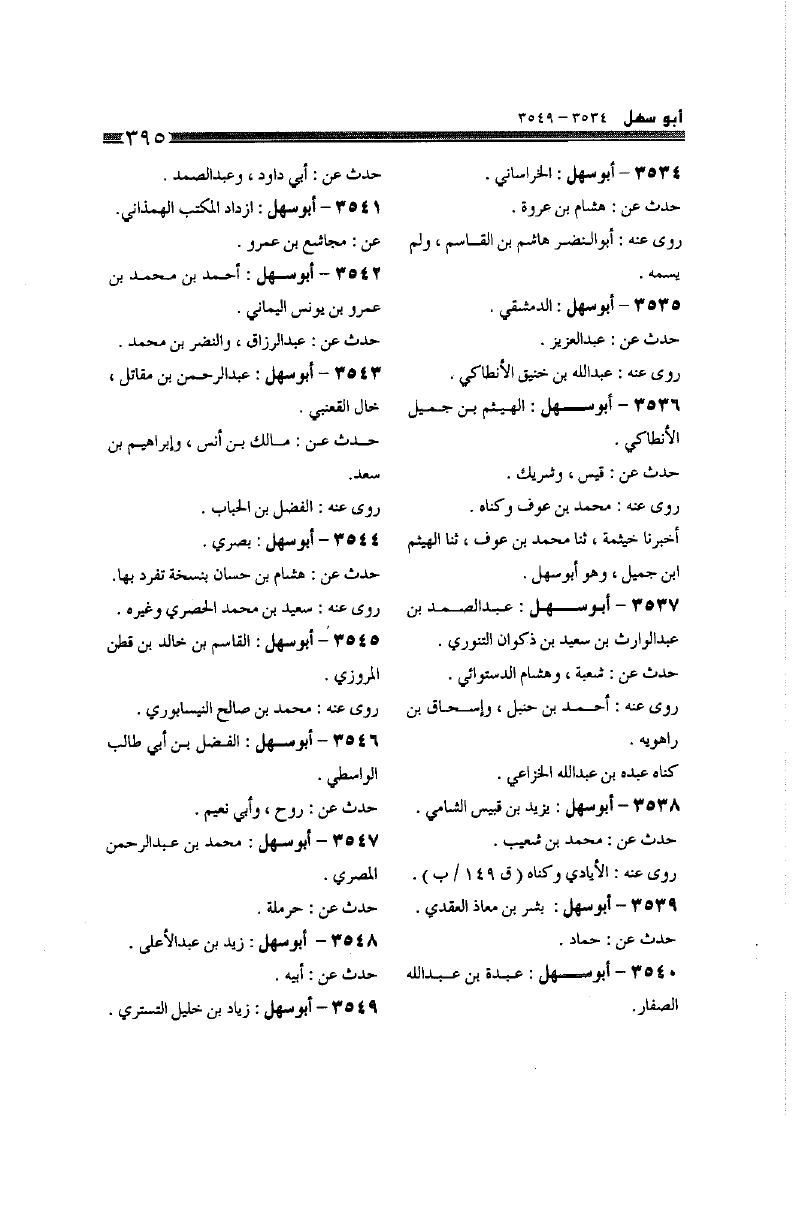 أبو سهل ٣٥٣٤ – ٣٥٤٩
٣٩٥
٣٥٣٤ – أبو سهل : الخراساني .
حدث عن : هشام بن عروة .
روى عنه : أبو النضر هاشم بن القاسم ، ولم
يسمه .
٣٥٣٥ – أبو سهل : الدمشقي .
حدث عن : عبدالعزيز .
روى عنه : عبدالله بن خنيق الأنطاكي .
٣٥٣٦ – أبو سهل : الهيثم بن جميل
الأنطاكي .
حدث عن : قيس ، وشريك .
روى عنه : محمد بن عوف وكناه .
أخبرنا خيثمة ، ثنا محمد بن عوف ، ثنا الهيثم
ابن جميل ، وهو أبو سهل .
٣٥٣٧ – أبو سهل : عبدالصمد بن
عبدالوارث بن سعيد بن ذكوان التنوري .
حدث عن : شعبة ، وهشام الدستوائي .
روى عنه : أحمد بن حنبل ، وإسحاق بن
راهويه .
كناه عبده بن عبدالله الخزاعي .
٣٥٣٨ – أبو سهل : يزيد بن قبيس الشامي .
حدث عن : محمد بن شعيب .
روى عنه : الأيادي وكناه ( ق ١٤٩ / ب ) .
٣٥٣٩ – أبو سهل : بشر بن معاذ العقدي .
حدث عن : حماد .
٣٥٤٠ – أبو سهل : عبدة بن عبدالله
الصفار.
حدث عن : أبي داود ، وعبدالصمد .
٣٥٤١ – أبو سهل : ازداد المكتب الهمذاني.
عن : مجاشع بن عمرو .
٣٥٤٢ – أبو سهل : أحمد بن محمد بن
عمرو بن يونس اليماني .
حدث عن : عبدالرزاق ، والنضر بن محمد .
٣٥٤٣ – أبو سهل : عبدالرحمن بن مقاتل ،
خال القعنبي .
حدث عن : مالك بن أنس ، وإبراهيم بن
سعد.
روى عنه : الفضل بن الحباب .
٣٥٤٤ – أبو سهل : بصري .
حدث عن : هشام بن حسان بنسخة تفرد بها.
روى عنه : سعيد بن محمد الحصري وغيره .
٣٥٤٥ – أبو سهل : القاسم بن خالد بن قطن
المروزي .
روى عنه : محمد بن صالح النيسابوري .
٣٥٤٦ – أبو سهل : الفضل بن أبي طالب
الواسطي .
حدث عن : روح ، وأبي نعيم .
٣٥٤٧ – أبو سهل : محمد بن عبدالرحمن
المصري .
حدث عن : حرملة .
٣٥٤٨ – أبو سهل : زيد بن عبدالأعلى .
حدث عن : أبيه .
٣٥٤٩ – أبو سهل : زياد بن خليل التستري .